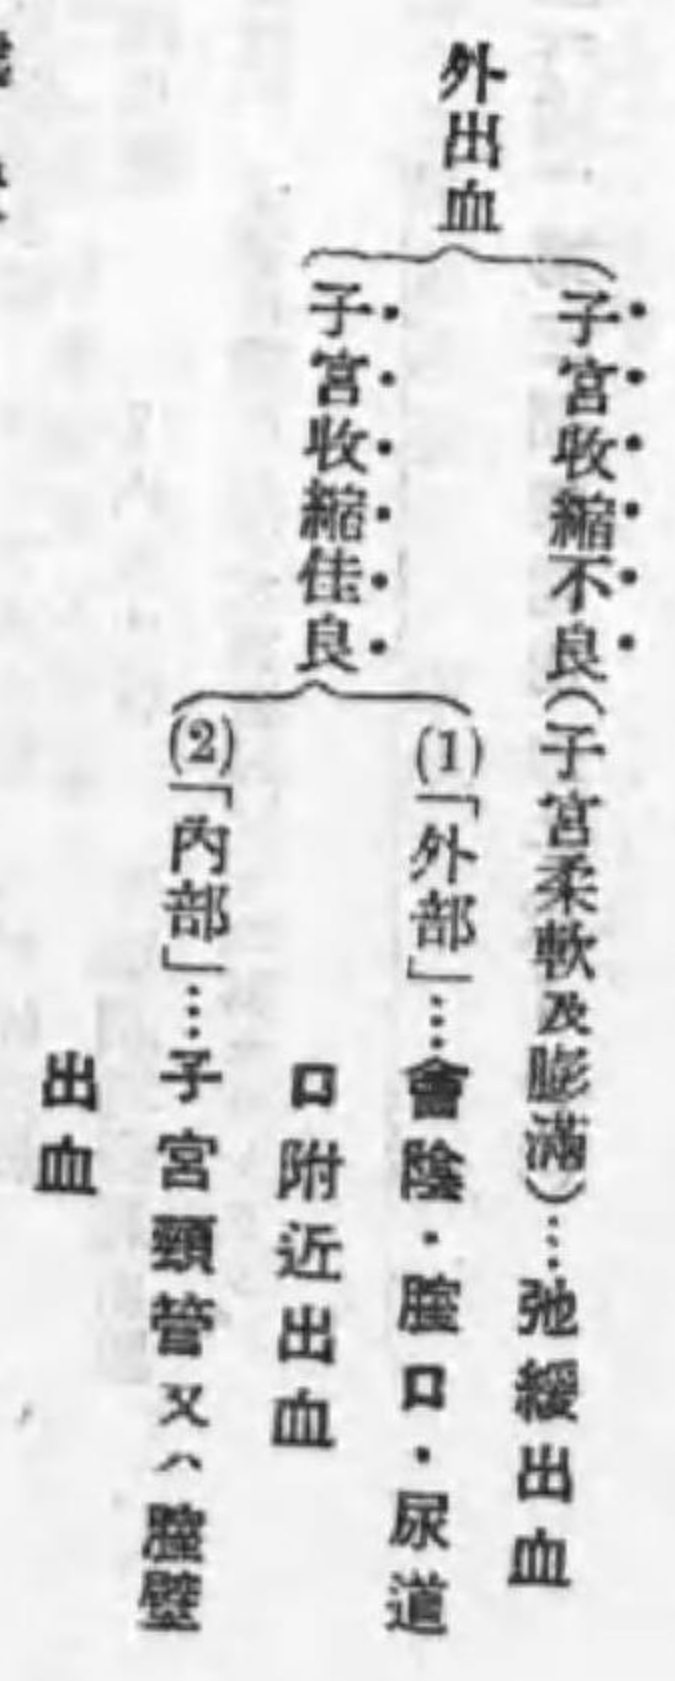 外出血
子宮收縮不良(子宮柔軟及膨滿)…弛緩出血
子宮收縮佳良
(1)「外部」…會陰・腟口・尿道
口附近出血
(2)「內部」…子宮頸管又ハ腟壁
出血